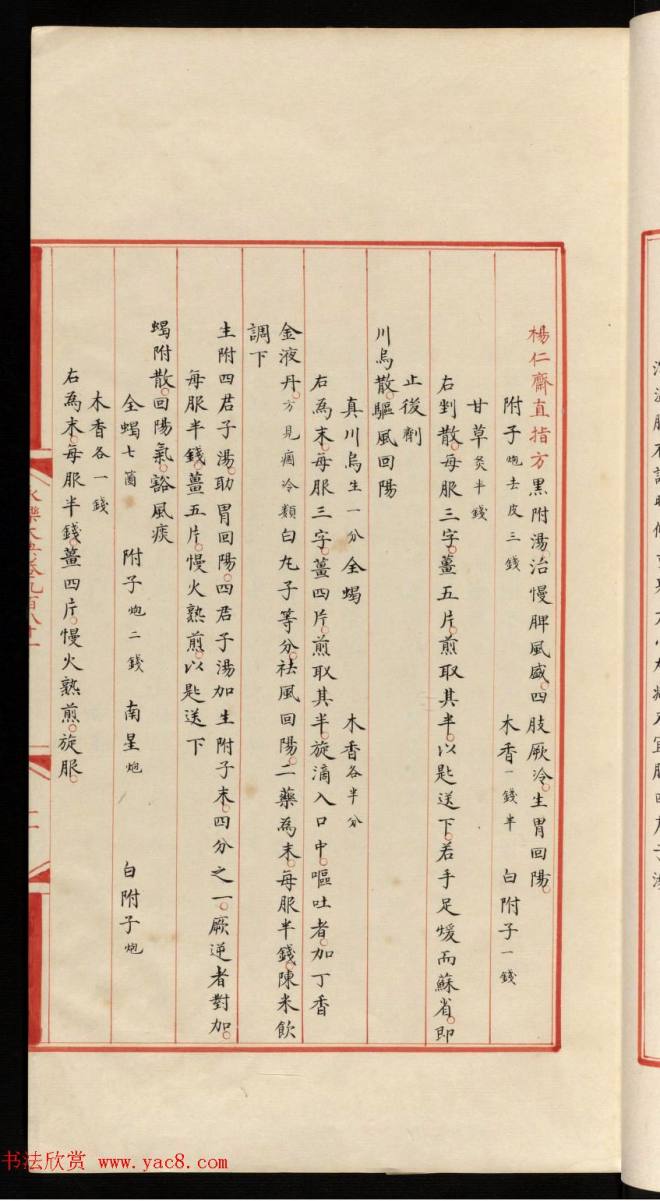 楊仁齋直指方黑附湯治慢脾風盛四肢厥冷生胃回陽
附子炮去皮三錢 木香一錢半 白附子一錢
甘草炙半錢
右剉散每服三字薑五片煎取其半以匙送下若手足煖而蘇省即
止後劑
川烏散驅風回陽
真川烏生一分 全蝎 木香各半分
右為末每服三字薑四片煎取其半旋滴入口中嘔吐者加丁香
金液丹方見痼冷類白丸子等分祛風回陽二藥為末每服半錢陳米飲
調下
生附四君子湯助胃回陽四君子湯加生附子末四分之一厥逆者對加
每服半錢薑五片慢火熟煎以匙送下
蝎附散回陽氣豁風痰
全蝎七箇 附子炮二錢 南星炮 白附子炮
木香各一錢
右為末每服半錢薑四片慢火熟煎旋服
永樂大典卷九百八十一
二
书法欣赏 www.yac8.com